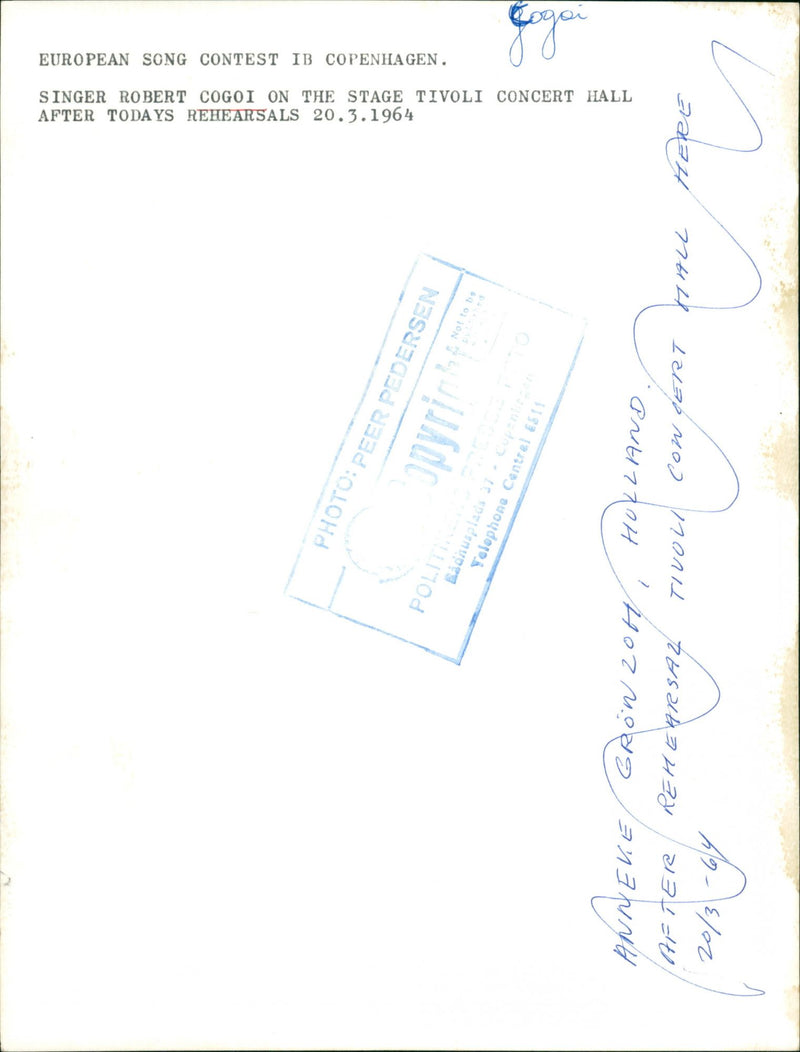 Cogoi
EUROPEAN SONG CONTEST IB COPENHAGEN.
SINGER ROBERT COGOI ON THE STAGE TIVOLI CONCERT HALL
AFTER TODAYS REHEARSALS 20.3.1964
PHOTO: PEER PEDERSEN
Copyright
Not to be
POLITIKENS PRESSE FOTO
Rådhusplads 37 - Copenhagen
Telephone Central 6511
ANNEKE GRÖNLOH, HOLLAND.
AFTER REHEARSAL TIVOLI CONCERT HALL HERE
20/3-64